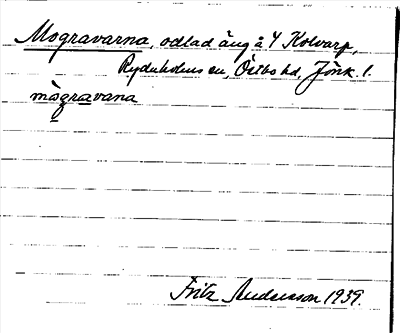 Mogravarna, odlad äng å 4 Kolvarp,
Rydaholms sn, Östbo hd, Jönk. l.
mògravana
Fritz Andersson 1939.